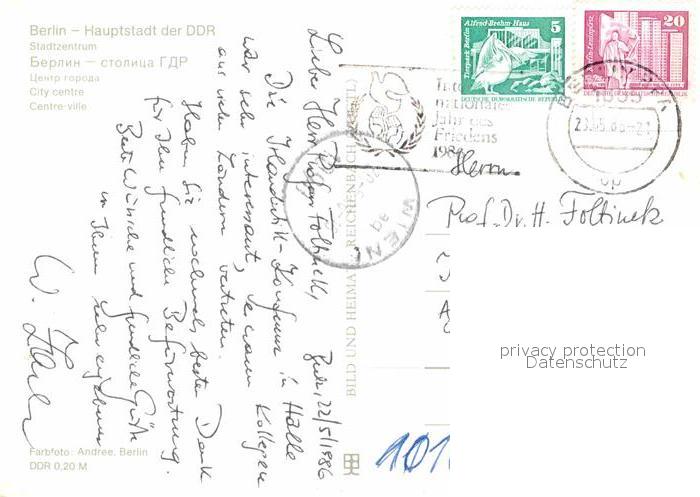 Berlin – Hauptstadt der DDR
Stadtzentrum
Берлин – столица ГДР
Центр города
City centre
Centre-ville
Lieber Herr Foltinek,
22/5/1986
Die Konferenz in Halle
war sehr interessant, es waren Kollegen
aus vielen Ländern vertreten.
Haben Sie nochmals besten Dank
für Ihre freundliche Befürwortung.
Beste Wünsche und freundliche Grüße
Ihr
W.
Farbfoto: Andree, Berlin
DDR 0,20 M
BILD UND HEIMAT REICHENBACH
Alfred-Brehm-Haus
Tierpark Berlin
5
DEUTSCHE DEMOKRATISCHE REPUBLIK
20
DEUTSCHE DEMOKRATISCHE REPUBLIK
Inter-
nationales
Jahr des
Friedens
1986
1085
up
WIEN
Herrn
Prof. Dr. H. Foltinek
101
privacy protection
Datenschutz